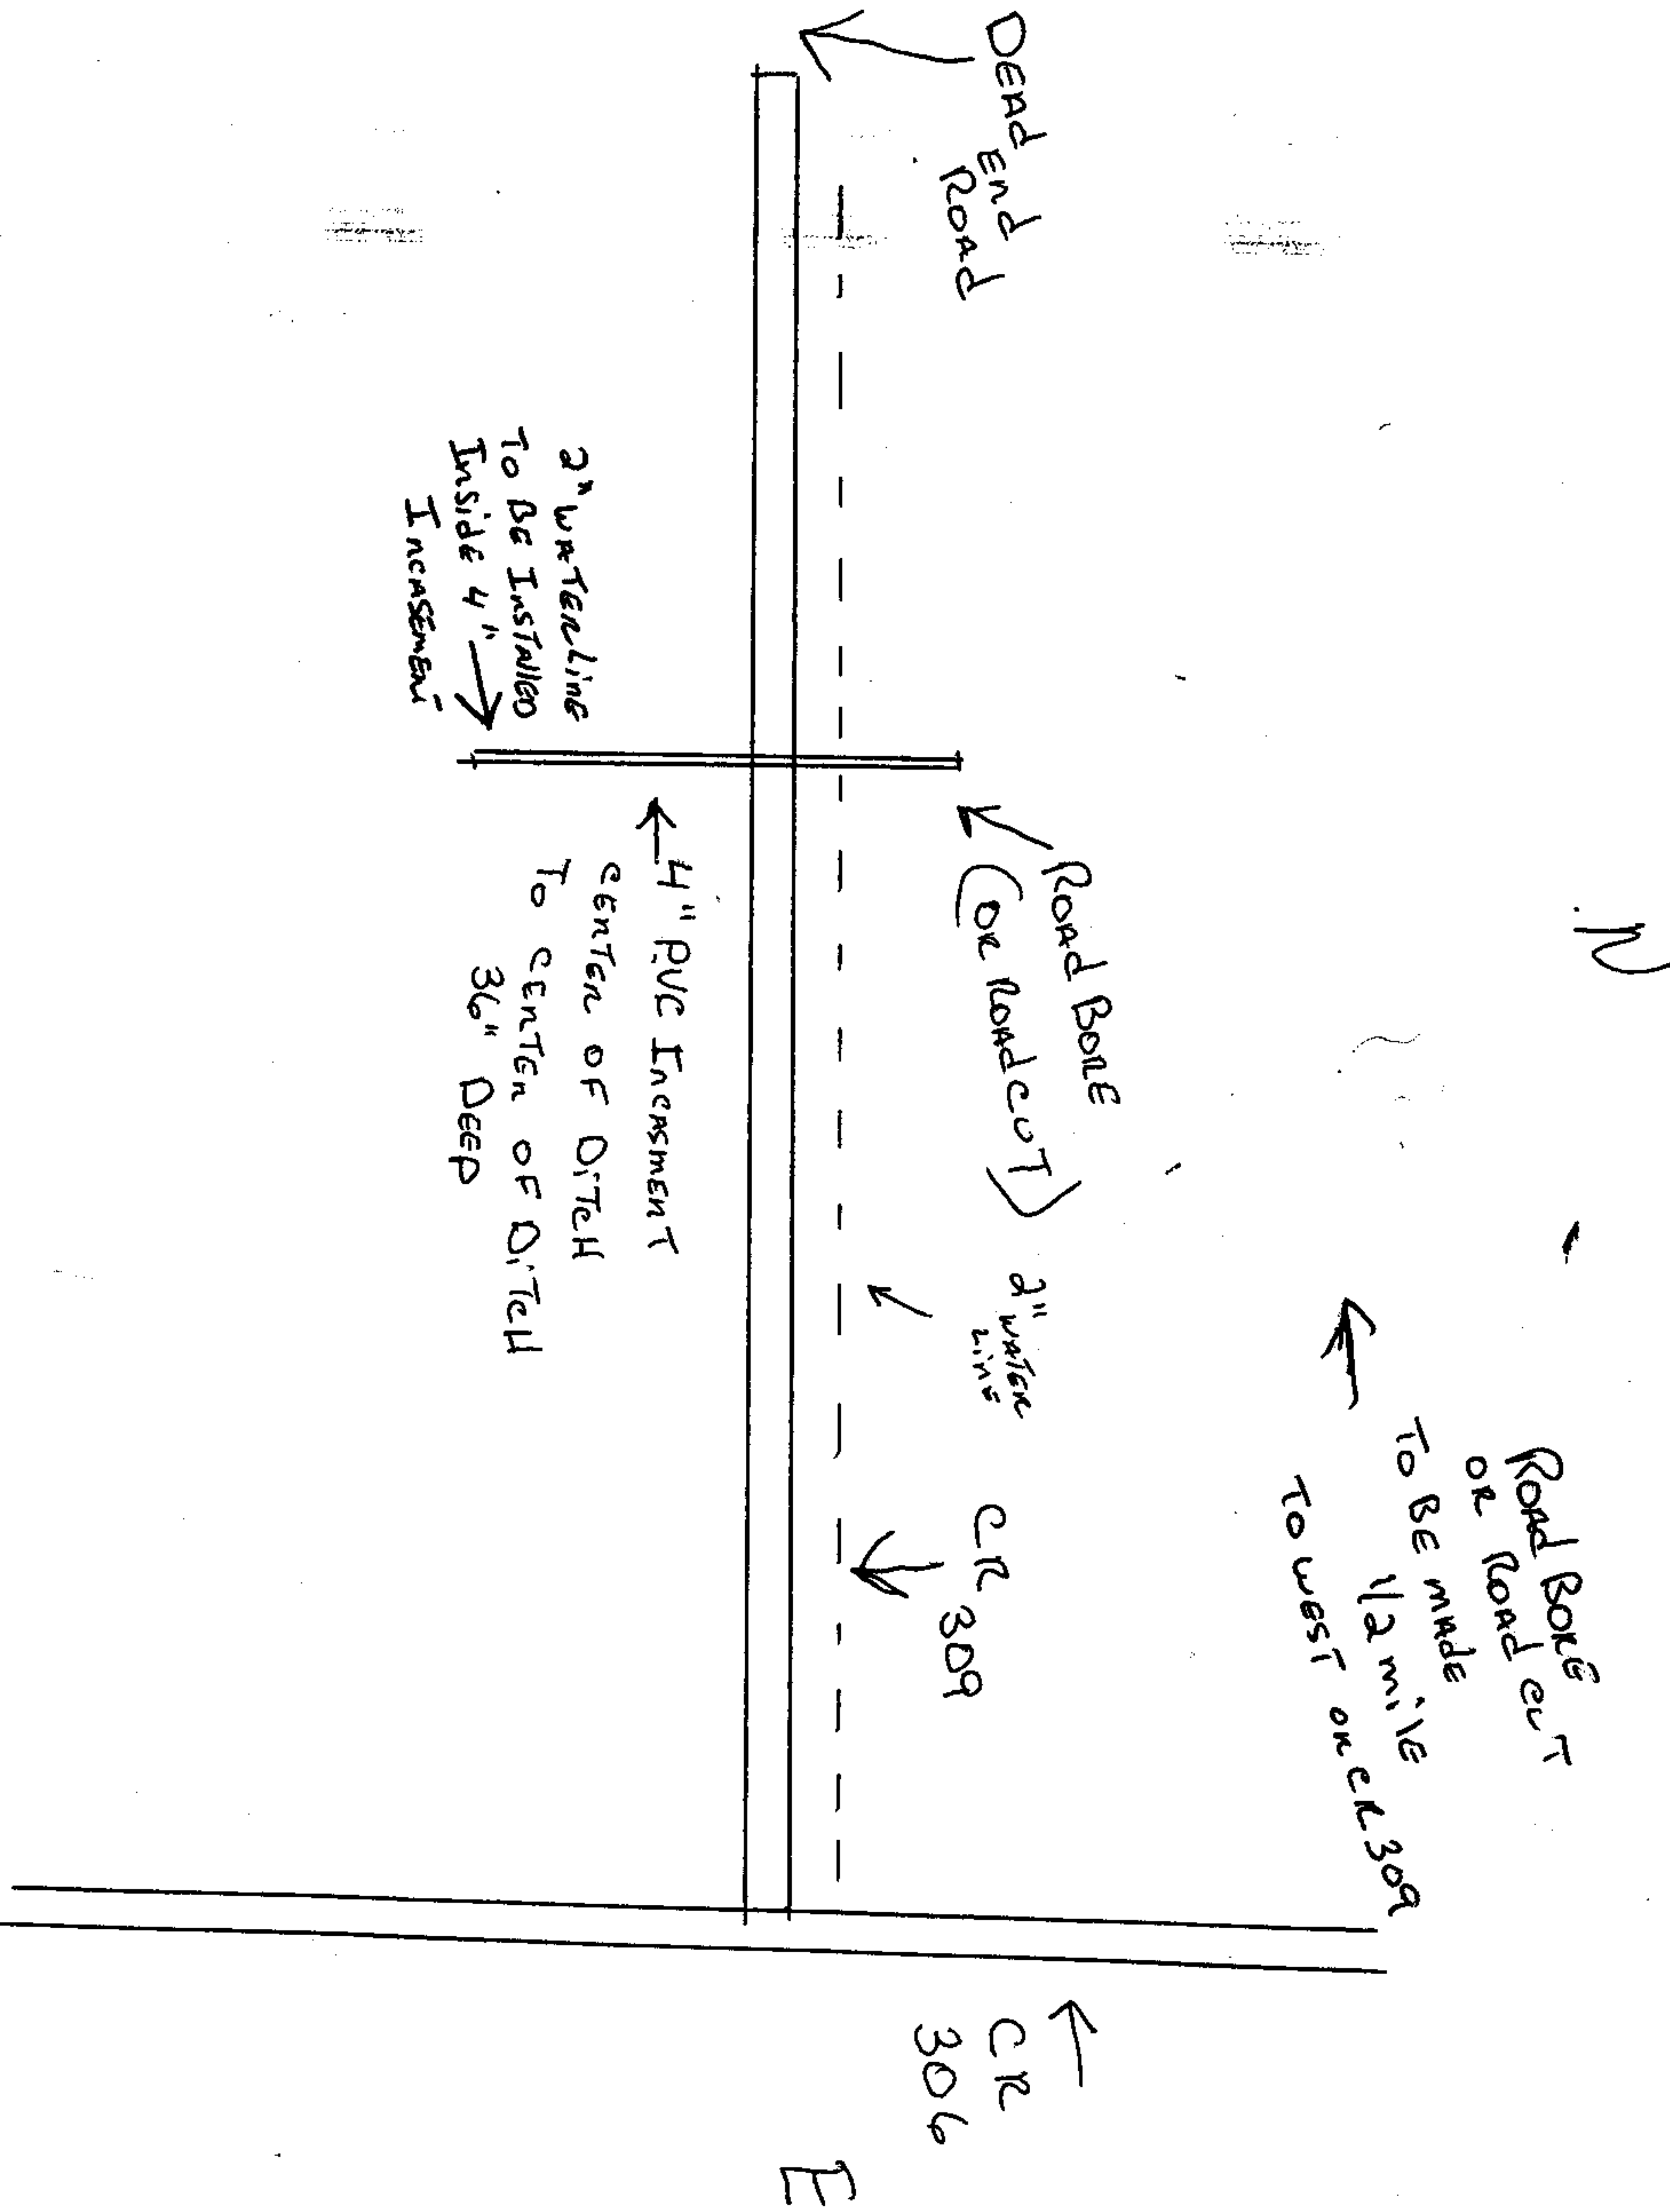 N
Road Bore
or Road cut
To Be made
1/2 mile
To west on CR 309
Dead End
Road
Road Bore
(or Road cut)
2" water
Line
CR 309
CR
306
E
2" waterline
To Be Installed
Inside 4"
Incasement
4" PVC Incasment
center of Ditch
To center of Ditch
36" Deep